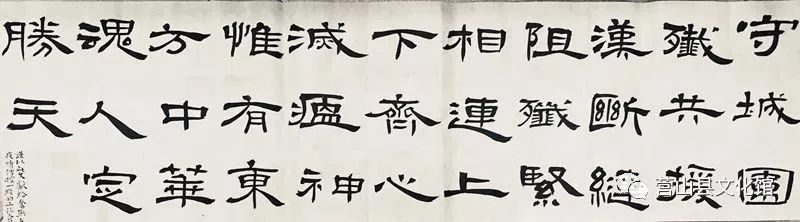 守城圍
殲共援
漢斷繼
阻殲緊
相連上
下齊心
滅瘟神
惟有東
方中華
魂人定
勝天
营山县文化馆